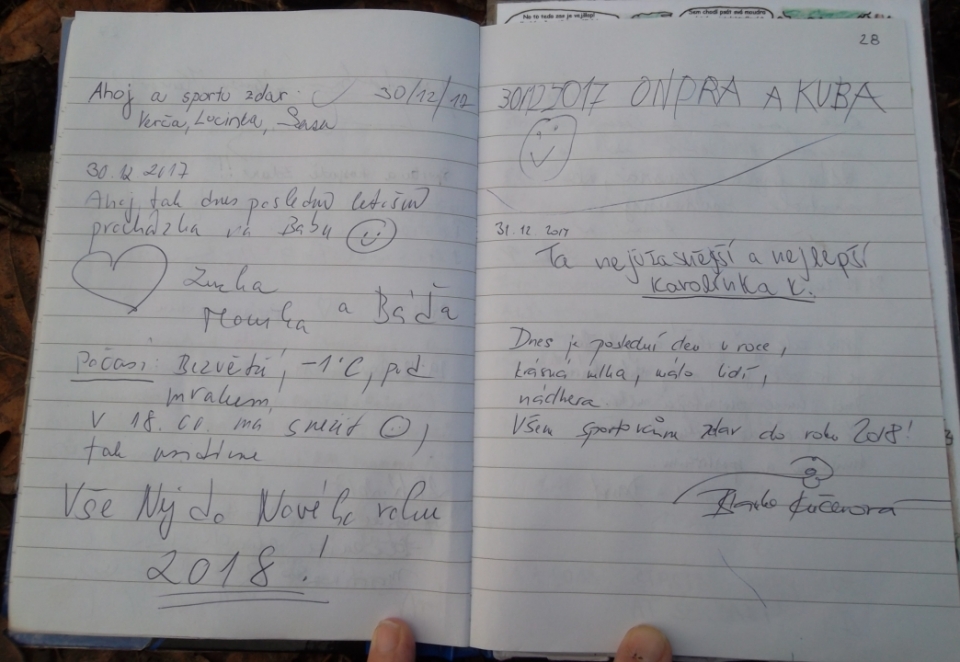 Ahoj a sportu zdar. 30/12/17
Verča, Lucinka, Sasa
30.12 2017
Ahoj tak dnes poslední letošní
procházka na Babu
Zuzka
a Báďa
Počasí: Bezvětří, -1°C, pod
mrakem,
v 18. ma sněžit
tak uvidíme
Vše Nej do Nového roku
2018!
28
30.12 2017 ONDRA A KUBA
31.12.2017
Ta nejúžasnější a nejlepší
Karolínka K.
Dnes je poslední den v roce,
krásná mlha, málo lidí,
nádhera.
Všem sportovcům zdar do roku 2018!
Kučerová